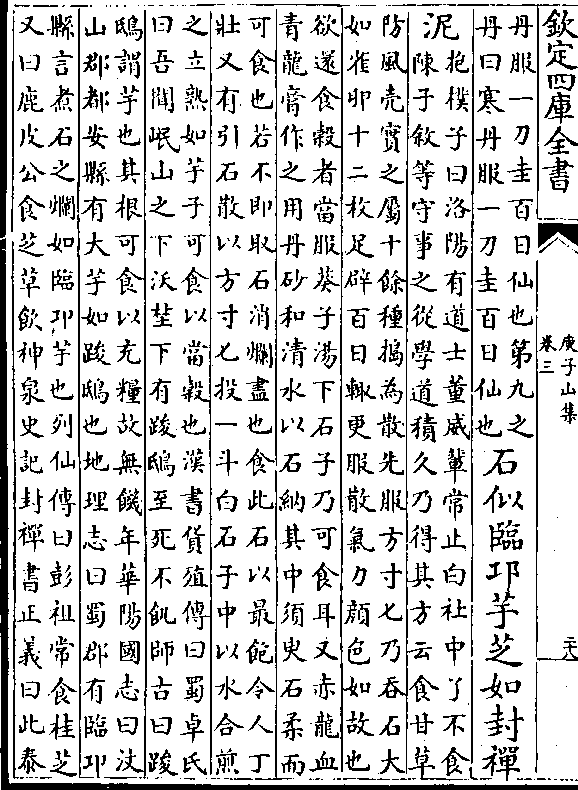 欽定四庫全書
庾子山集
卷三
丹服一刀圭百日仙也第九之
丹曰寒丹服一刀圭百日仙也
石似臨邛芋芝如封禪
泥
抱樸子曰洛陽有道士董威輦常止白社中了不食
陳子敘等守事之從學道積久乃得其方云食甘草
防風莧實之屬十餘種搗為散先服方寸匕乃吞石大
如雀卵十二枚足辟百日輒更服散氣力顏色如故也
欲還食穀者當服葵子湯下石子乃可食耳又赤龍血
青龍膏作之用丹砂和清水以石納其中須臾石柔而
可食也若不即取石消爛盡也食此石以最飽令人丁
壯又有引石散以方寸匕投一斗白石子中以水合煎
之立熟如芋子可食以當穀也漢書貨殖傳曰蜀卓氏
曰吾聞岷山之下沃埜下有踆鴟至死不飢師古曰踆
鴟謂芋也其根可食以充糧故無饑年華陽國志曰汶
山郡都安縣有大芋如踆鴟也地理志曰蜀郡有臨邛
縣言煮石之爛如臨邛芋也列仙傳曰彭祖常食桂芝
又曰鹿皮公食芝草飲神泉史記封禪書正義曰此泰